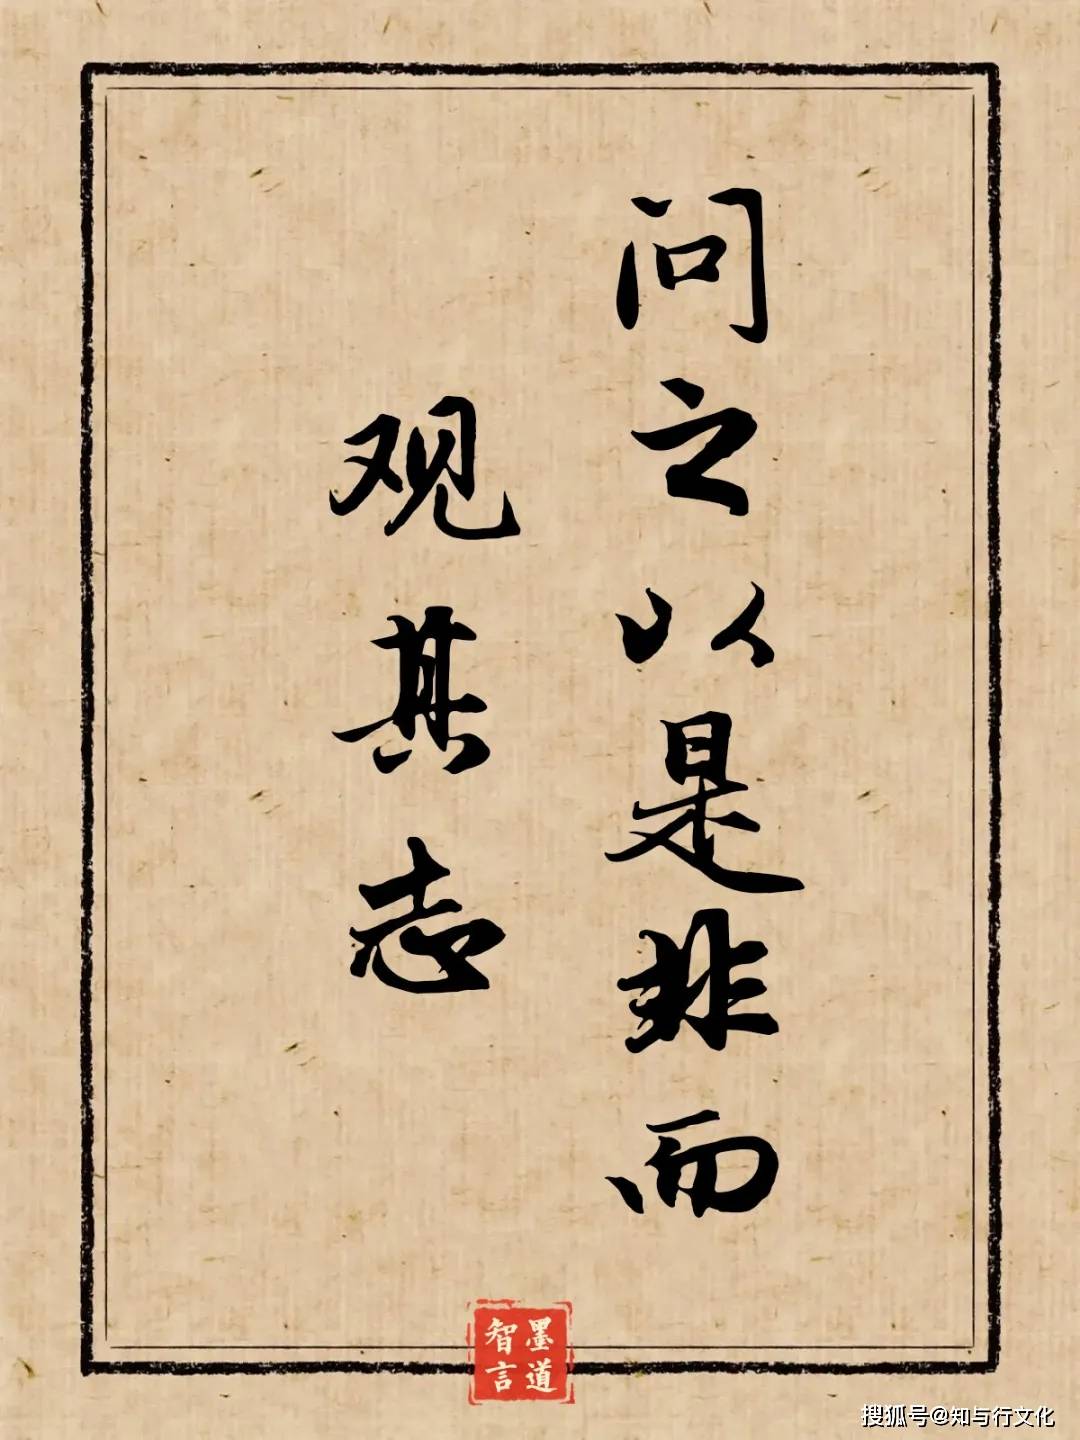 问之以是非而
观其志
墨道
智言
搜狐号@知与行文化